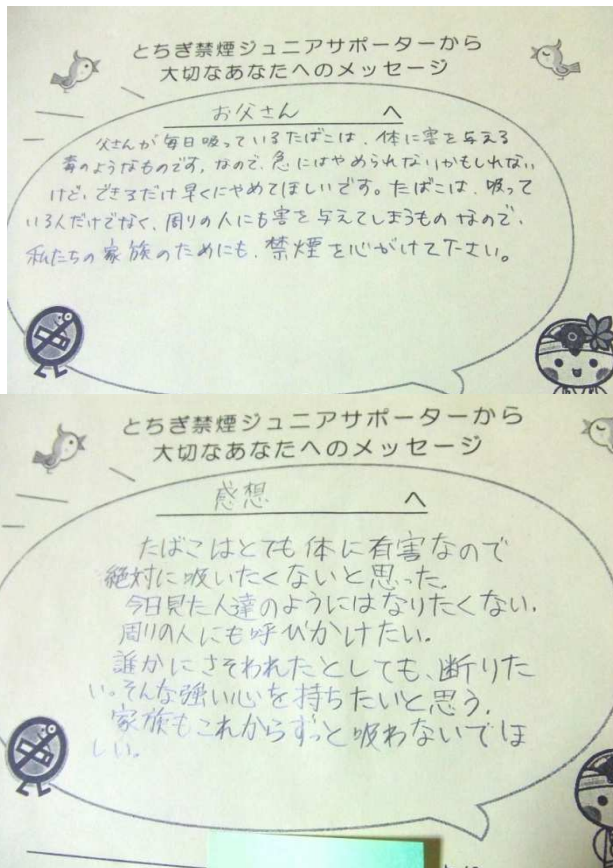 とちぎ禁煙ジュニアサポーターから
大切なあなたへのメッセージ
お父さん へ
父さんが毎日吸っているたばこは、体に害を与える
毒のようなものです。なので、急にはやめられないかもしれない
けど、できるだけ早くにやめてほしいです。たばこは、吸って
いる人だけでなく、周りの人にも害を与えてしまうものなので、
私たちの家族のためにも、禁煙を心がけて下さい。
とちぎ禁煙ジュニアサポーターから
大切なあなたへのメッセージ
感想 へ
たばこはとても体に有害なので
絶対に吸いたくないと思った。
今日見た人達のようにはなりたくない。
周りの人にも呼びかけたい。
誰かにさそわれたとしても、断りた
い。そんな強い心を持ちたいと思う。
家族もこれからずっと吸わないでほ
しい。